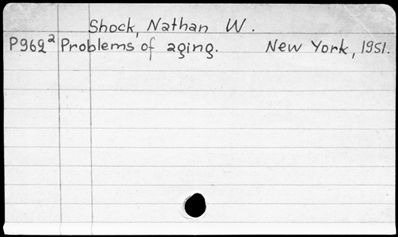 Shock, Nathan W.
P962² Problems of aging. New York, 1951.